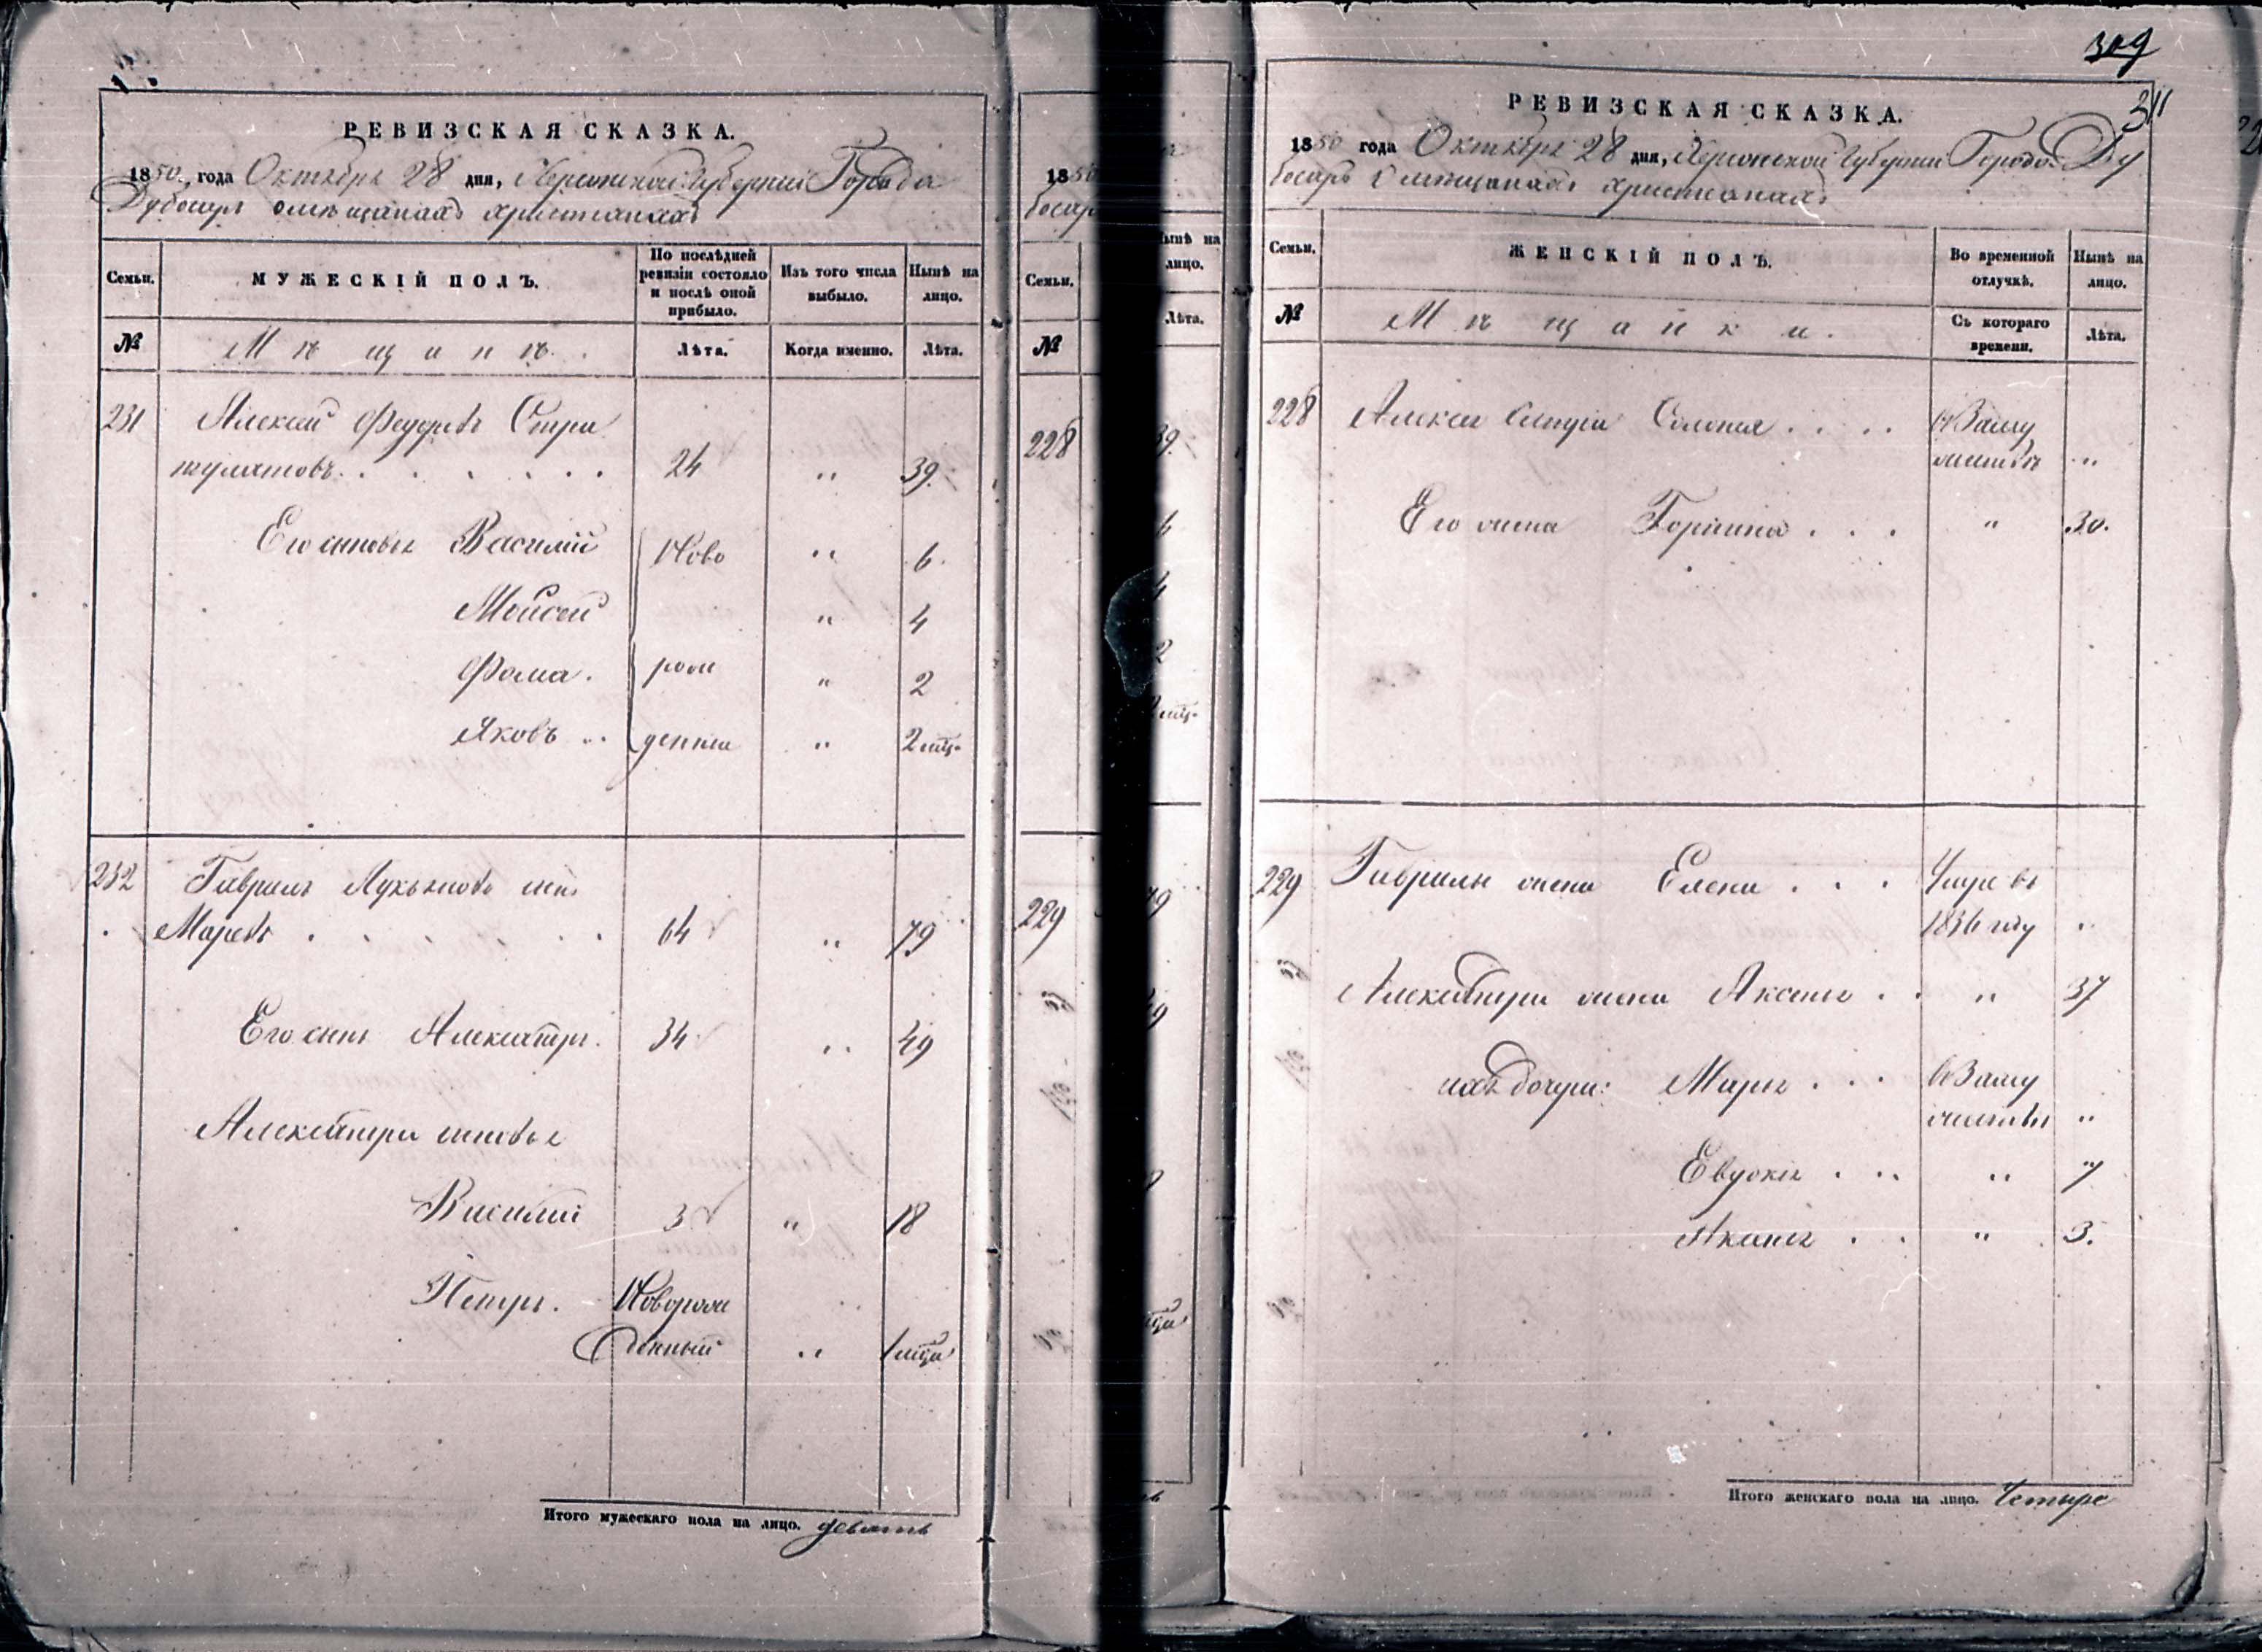 РЕВИЗСКАЯ СКАЗКА.
1850 года Октября 28 дня, Херсонской Губернии Города
Дубосаръ о мѣщанахъ христианахъ
Семьи.
МУЖЕСКІЙ ПОЛЪ.
По послѣдней ревизіи состояло и послѣ оной прибыло.
Изъ того числа выбыло.
Нынѣ на лицо.
№
Мѣщанѣ.
Лѣта.
Когда именно.
Лѣта.
231 Алексей Федоровъ
24 " 39.
Его сыновья Василий Ново " 6.
Моисей " 4
Фома. рож " 2
Яковъ .. денные " 2 мѣс.
232 Гавриилъ Лукьяновъ сынъ
64 " 79
Его сынъ Александръ. 34 " 49
Александра сыновья
Василий 3 " 18
Петръ. Новорож
денный " 1 мѣца
Итого мужескаго пола на лицо. девять
1850
босар
Семьи.
№
228
229
ынѣ на
лицо.
Лѣта.
39.
6
4
2
2 мѣс.
79
49
309
311
РЕВИЗСКАЯ СКАЗКА.
1850 года Октября 28 дня, Херсонской Губернии Города Ду
босаръ о мѣщанахъ христианахъ
Семьи.
ЖЕНСКІЙ ПОЛЪ.
Во временной отлучкѣ.
Нынѣ на лицо.
№
Мѣщанки.
Съ котораго времени.
Лѣта.
228 Алексея въ Заму
жестве "
Его жена " 30.
229 Гавриилы жена Елена . . . Умре въ
1836 году "
Александра жена Аксенья . . " 37
ихъ дочери: Марья . . . въ Заму
жестве "
Евдокия . . . " 7
" 3.
Итого женскаго пола на лицо. Четыре